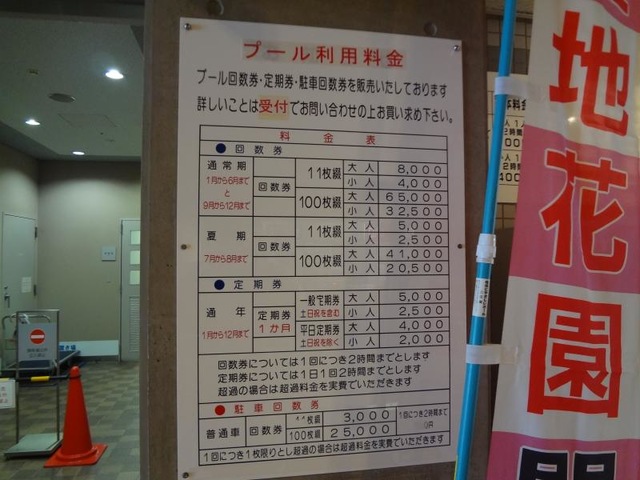 プール利用料金
プール回数券・定期券・駐車回数券を販売いたしております
詳しいことは受付でお問い合わせの上お買い求め下さい。
料 金 表
● 回 数 券
通常期
1月から6月まで
と
9月から12月まで
回数券
11枚綴 大人 8,000
小人 4,000
100枚綴 大人 65,000
小人 32,500
夏 期
7月から8月まで
回数券
11枚綴 大人 5,000
小人 2,500
100枚綴 大人 41,000
小人 20,500
● 定 期 券
通 年
1月から12月まで
定期券
1か月
一般定期券 大人 5,000
土日祝を含む 小人 2,500
平日定期券 大人 4,000
土日祝を除く 小人 2,000
回数券については1回につき2時間までとします
定期券については1日1回2時間までとします
超過の場合は超過料金を実費でいただきます
● 駐 車 回 数 券
普通車 回数券
11枚綴 3,000
100枚綴 25,000
1回につき2時間まで
1回につき1枚限りとし超過の場合は超過料金を実費でいただきます
地花園